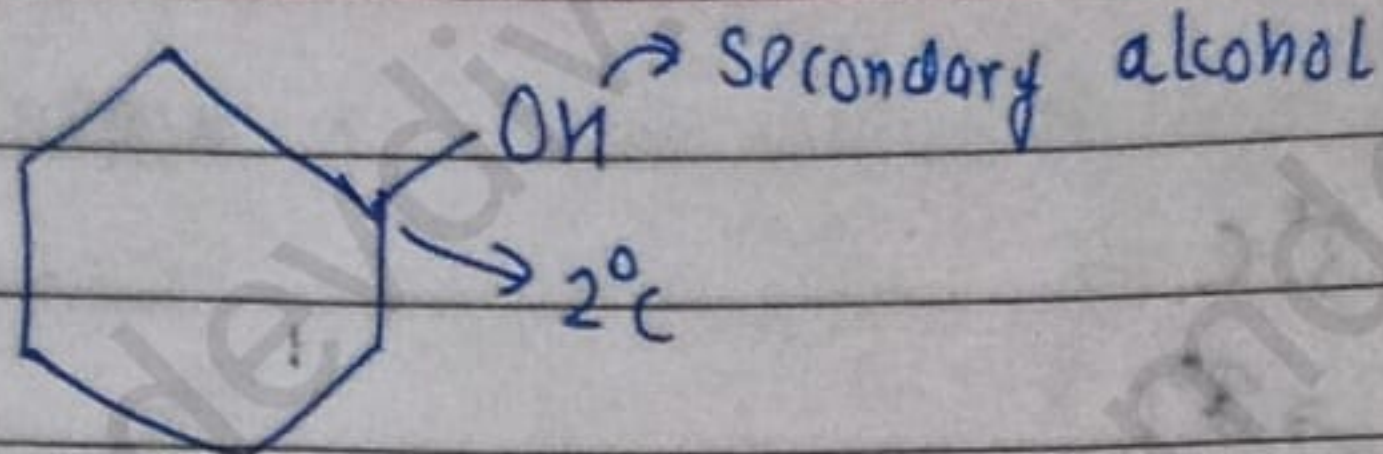 OH → Secondary alcohol
→ 2°C